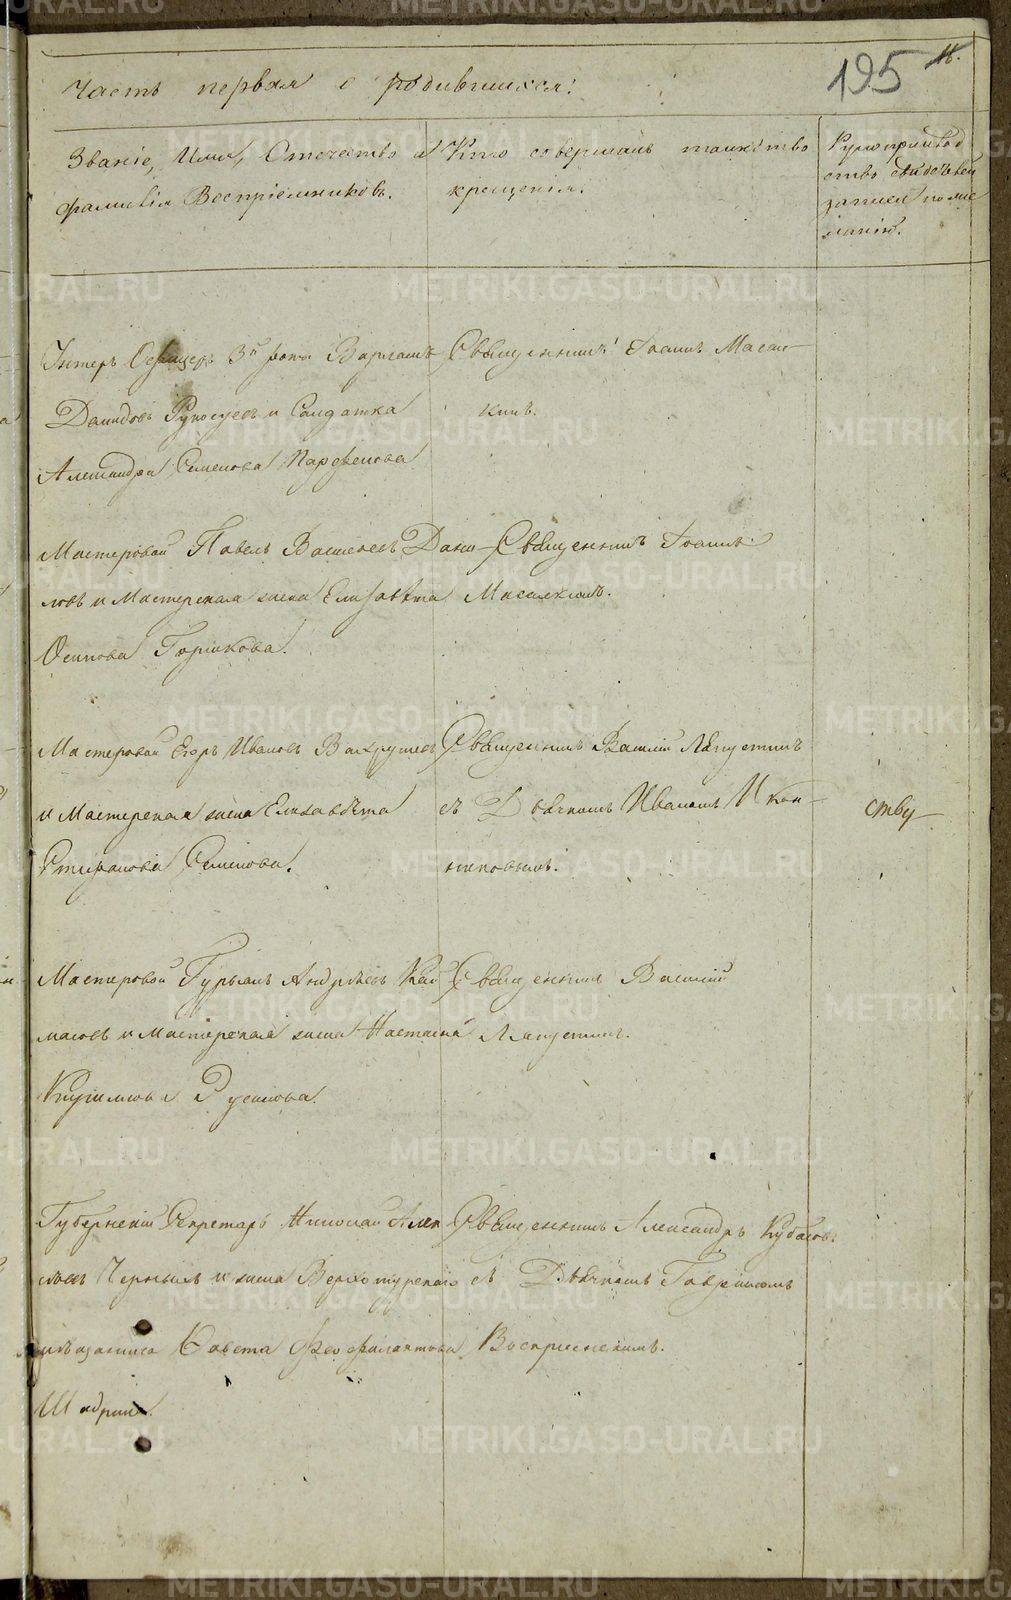 195 11.
Часть первая о родившихся:
Званіе, Имя, Отечество и
фамилія Воспріемниковъ.
Кто совершалъ таинство
крещенія.
Рукоприклад
ство свидѣтелей
записи по же
ланію.
Унтеръ Офицеръ Варлаамъ
Давидовъ и Салдатка
Александра Семенова Парфенова
Священникъ Іоаннъ Масал
кинъ.
Мастеровой Павелъ Васильевъ Дани
ловъ и Мастерская жена Елизавета
Осипова Горшкова.
Священникъ Іоаннъ
Мастеровой Егоръ Ивановъ Вахрушевъ
и Мастерская жена Елизавѣта
Степанова Семенова.
Священникъ Василій Ляпустинъ
съ Дьячкомъ Иваномъ Икон
никовымъ.
ству
Мастеровой Гурьянъ Андрѣевъ Кай
маковъ и Мастерская жена Настасья
Священникъ Василій
Ляпустинъ.
Губернскій Секретарь Николай Алек
сѣевъ Черныхъ и жена Верхотурскаго
мѣщанина Елисавета Феофилактова
Шадрина.
Священникъ Александръ Кубасовъ
съ Дьячкомъ Гавріиломъ
Воскресенскимъ.
METRIKI.GASO-URAL.RU